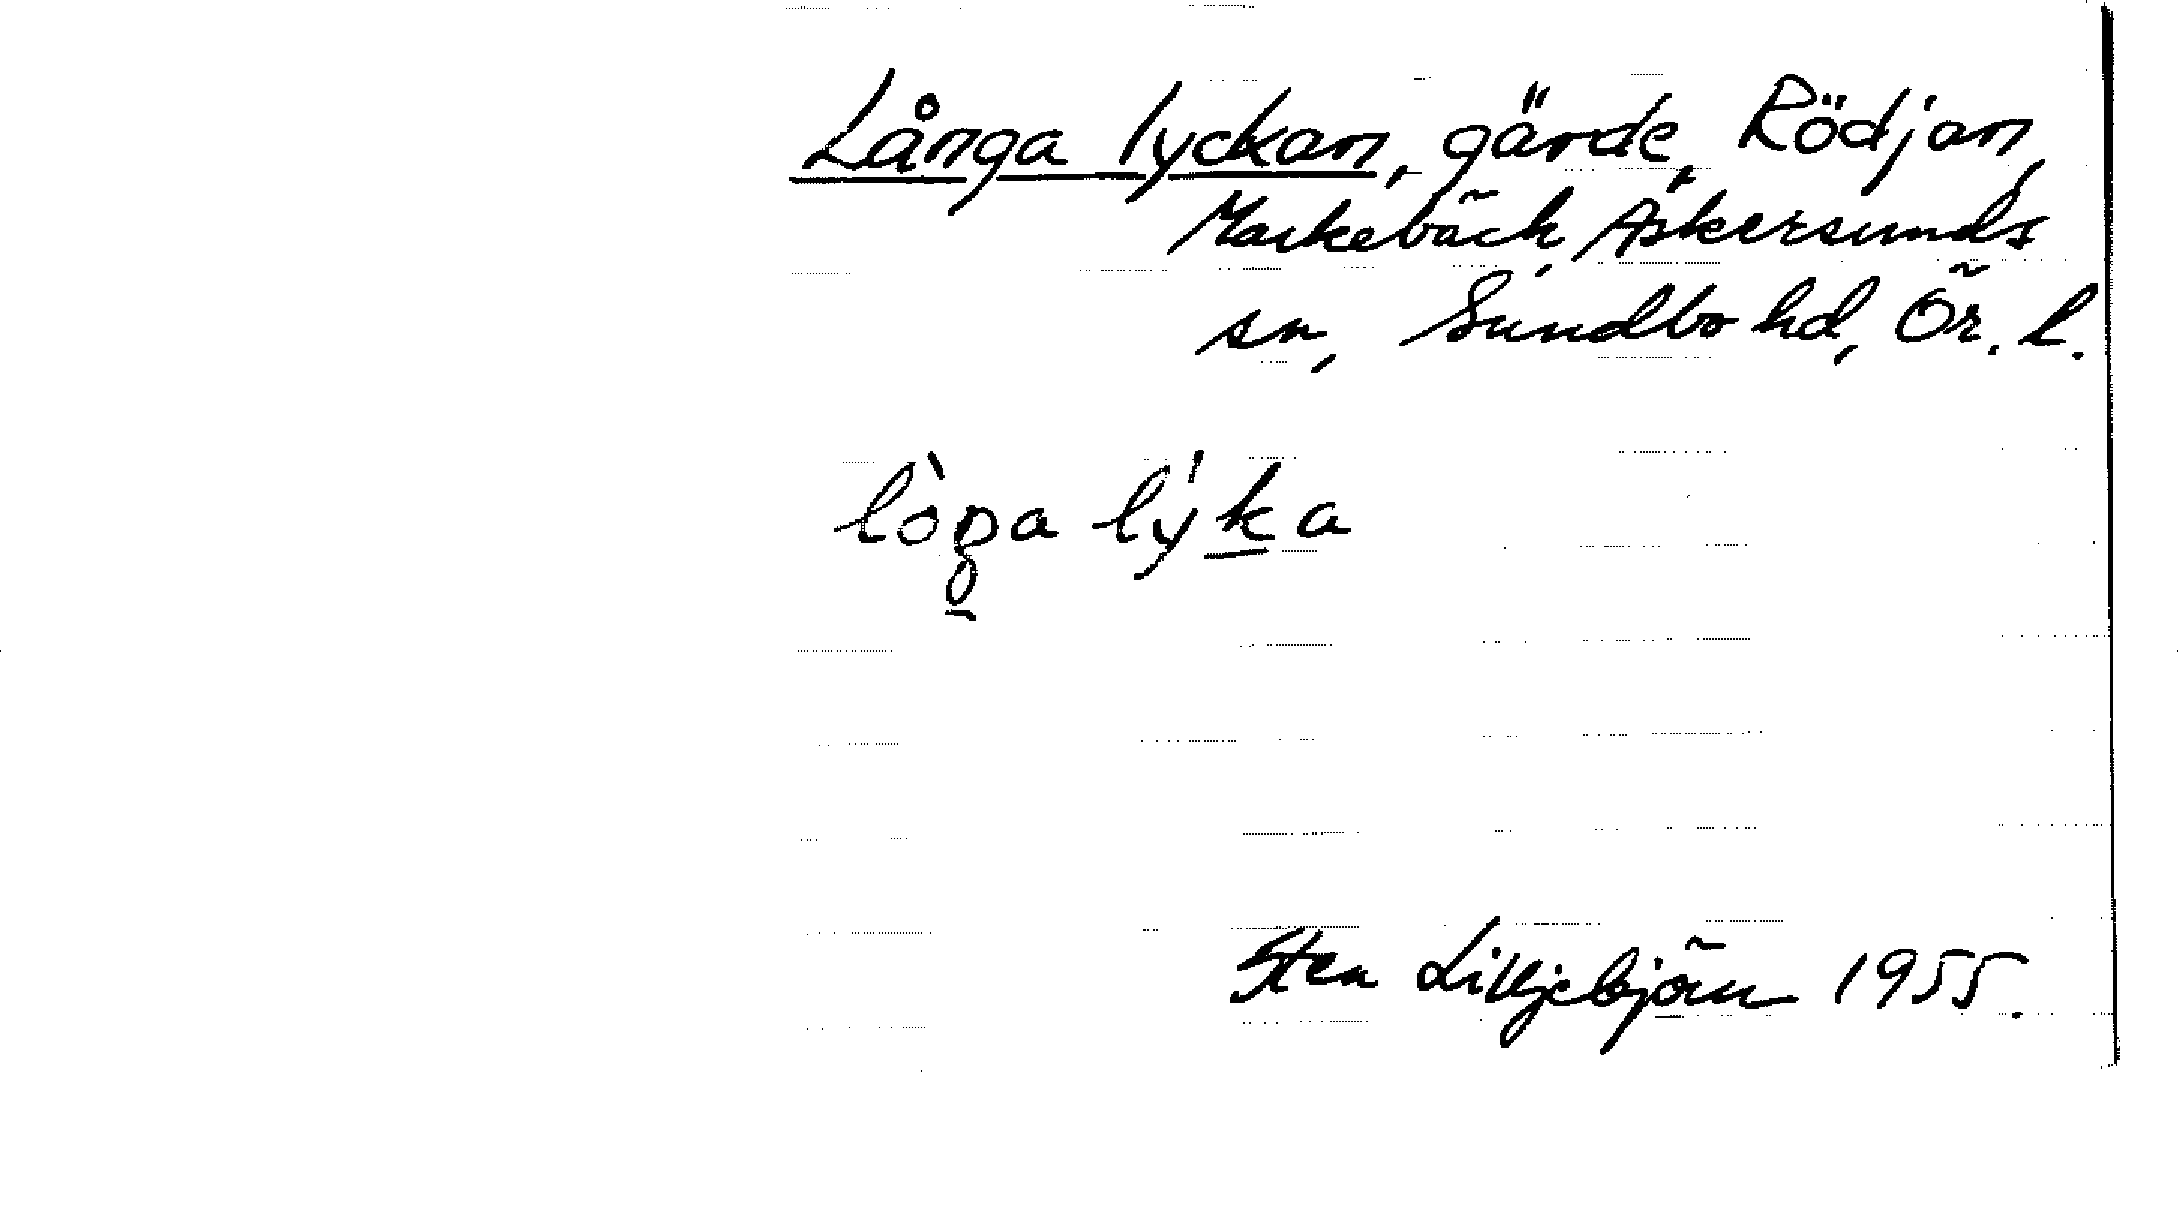 Långa lyckan, gärde, Rödjan,
Markebäck, Askersunds
sn, Sundbo hd, Ör. l.
lòŋa lýka
Sten Lilljebjörn 1955.